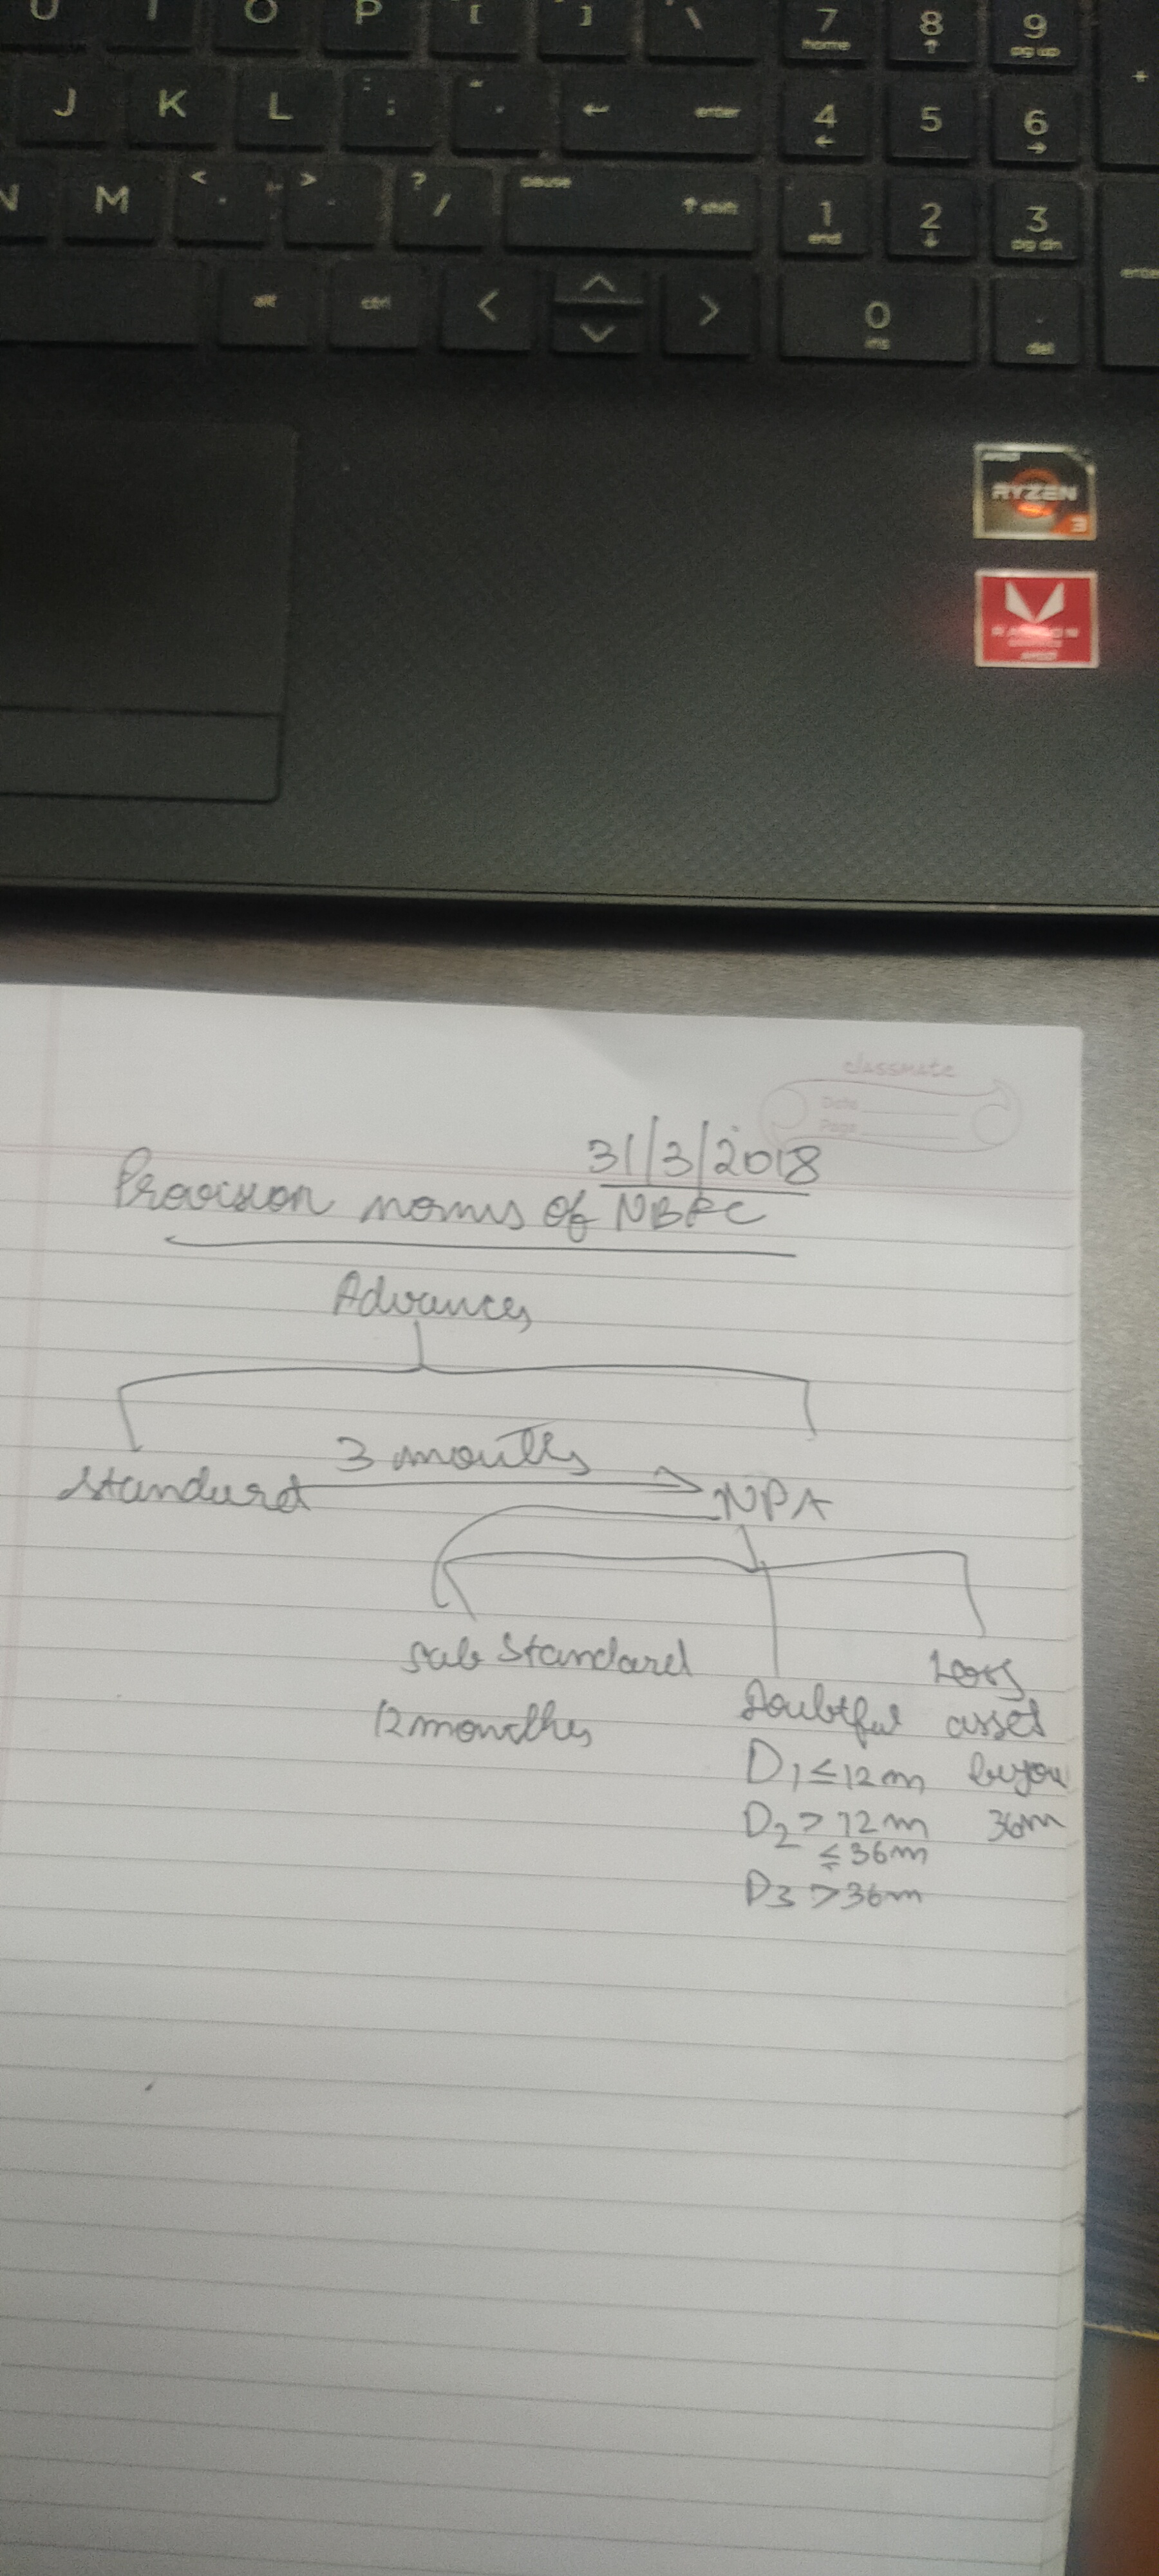 U I O P [ ] \ 7 home 8 9 pg up +
J K L : ; " ' enter 4 5 6
N M < , > . ? / pause shift 1 end 2 3 pg dn enter
alt ctrl 0 ins . del
AMD
RYZEN
3
RADEON
GRAPHICS
AMD
classmate
Date
Page
31/3/2018
Provision norms of NBFC
Advances
3 months
Standard NPA
Sub Standard
12 months
Doubtful
D1 ≤ 12m
D2 > 12m
≤ 36m
D3 > 36m
Loss
asset
beyon
36m